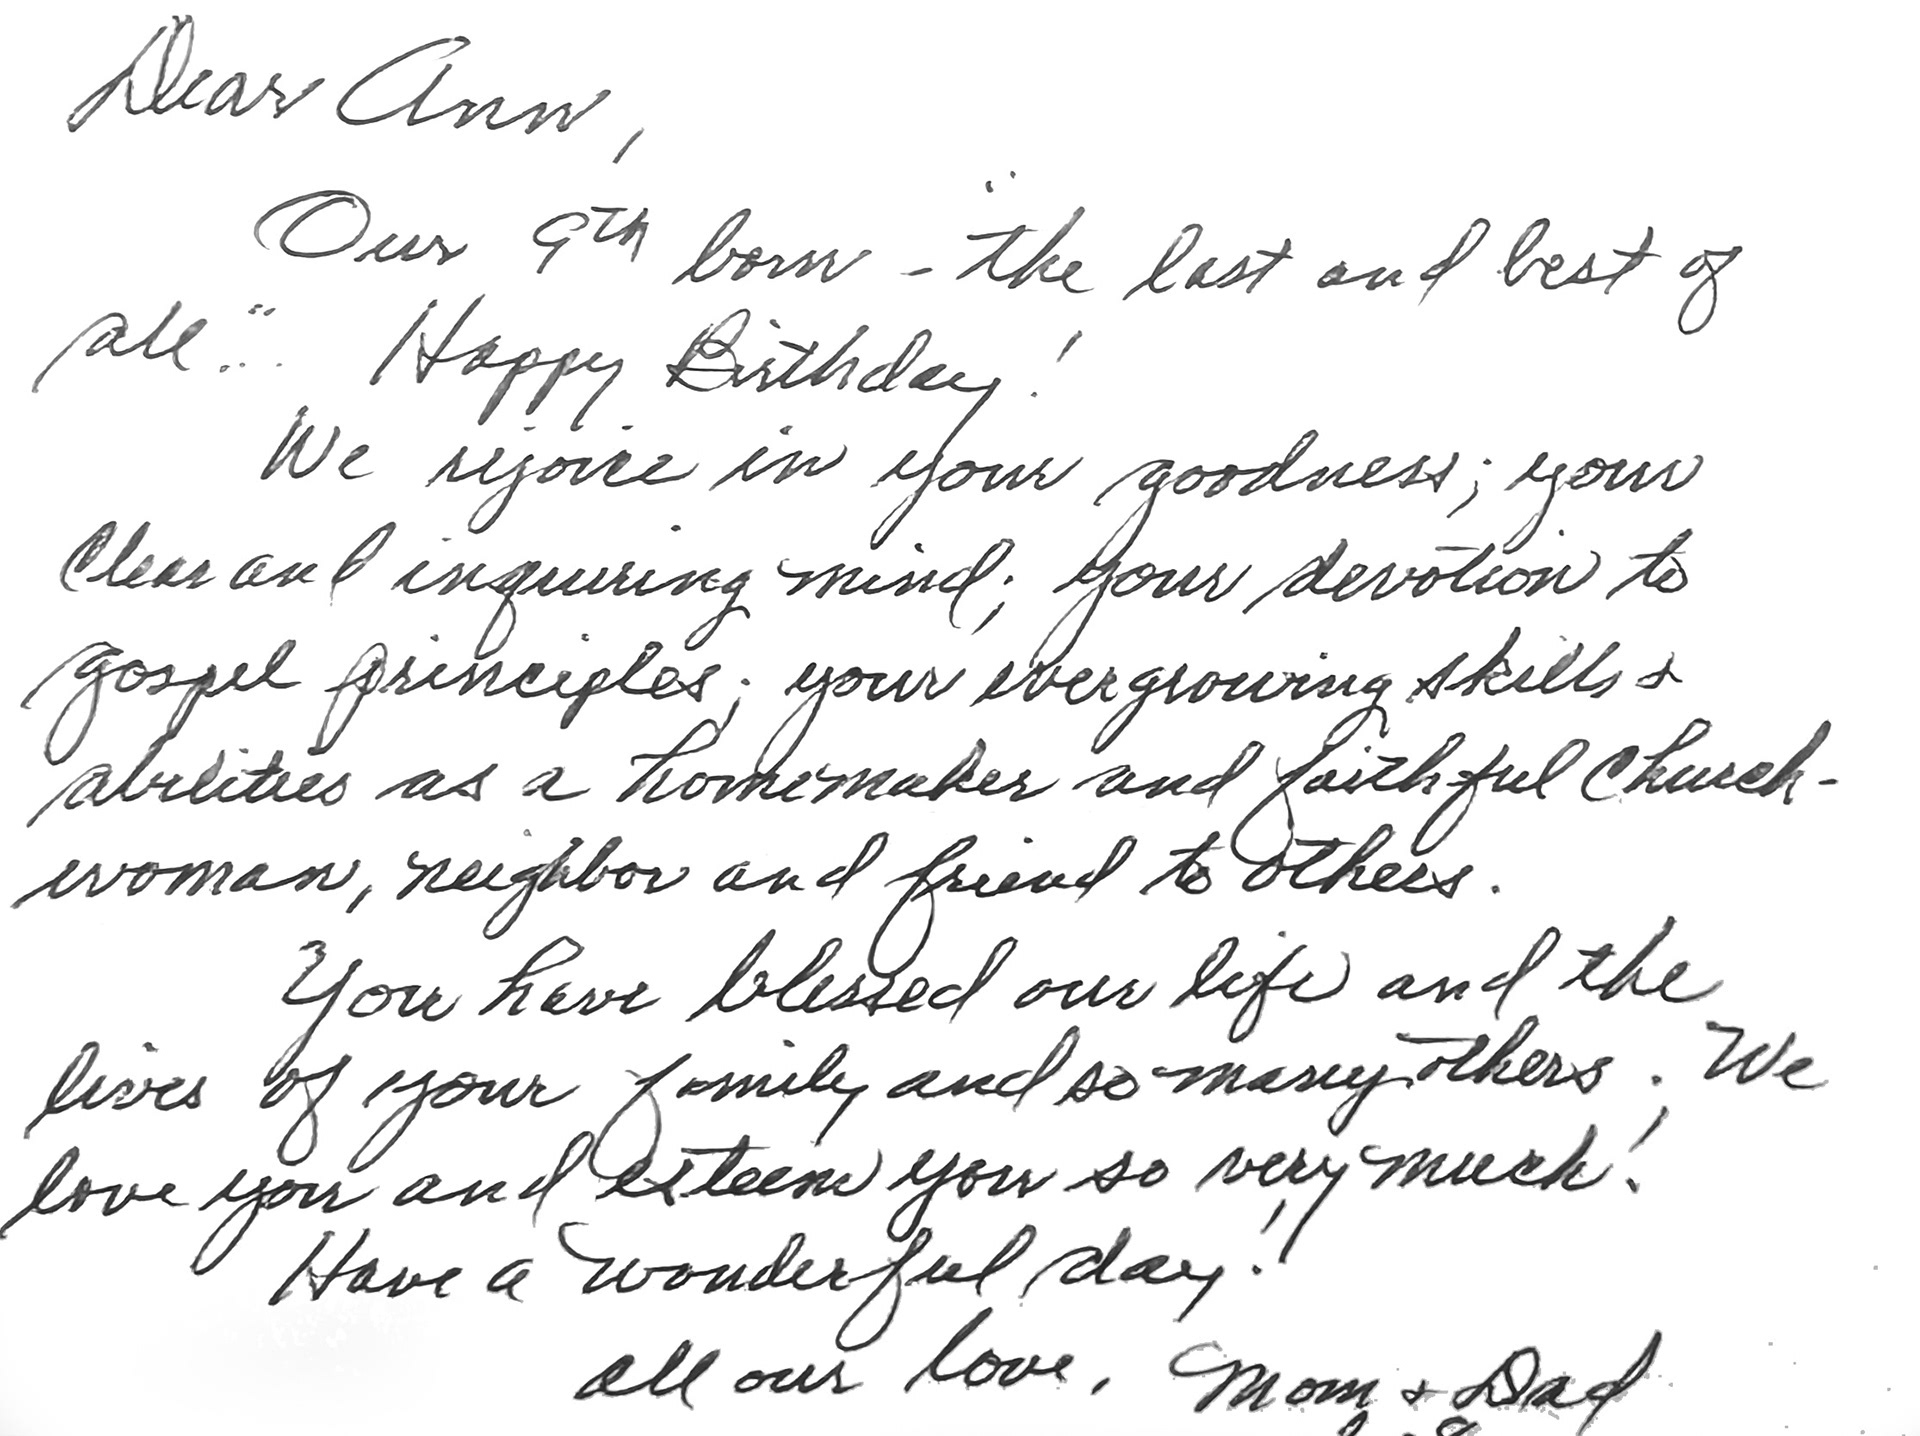 Dear Ann,
Our 9th born - "the last and best of
all"... Happy Birthday!
We rejoice in your goodness; your
clear and inquiring mind; your devotion to
gospel principles; your evergrowing skills &
abilities as a homemaker and faithful Church-
woman, neighbor and friend to others.
You have blessed our life and the
lives of your family and so many others. We
love you and esteem you so very much!
Have a wonderful day!
All our love, Mom & Dad